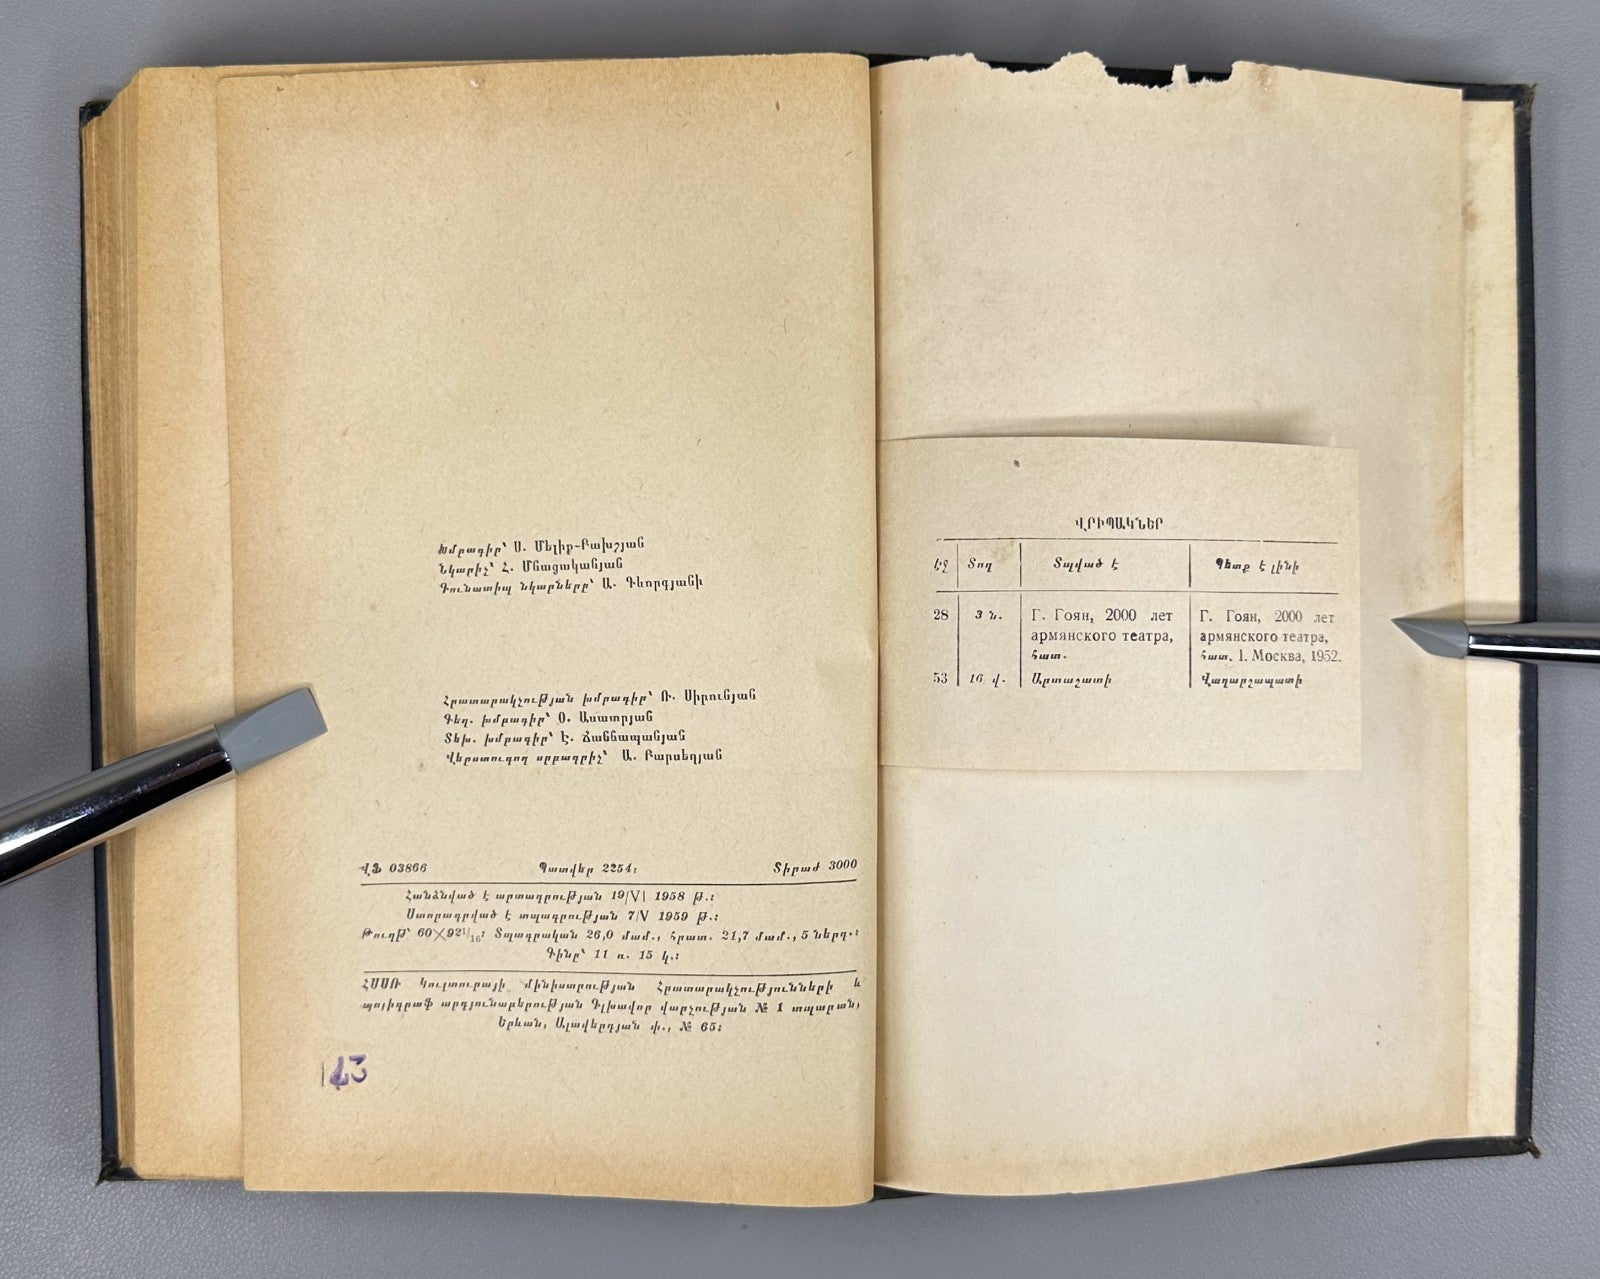 Խմբագիր՝ Ս. Մելիք-Բախշյան
Նկարիչ՝ Հ. Մնացականյան
Գունատիպ նկարները՝ Ա. Գևորգյանի
Հրատարակչության խմբագիր՝ Ռ. Սիրունյան
Գեղ. խմբագիր՝ Օ. Ասատրյան
Տեխ. խմբագիր՝ Է. Ճաննապանյան
Վերստուգող սրբագրիչ՝ Ա. Բարսեղյան
ՎՖ 03866 Պատվեր 2254։ Տիրաժ 3000
Հանձնված է արտադրության 19/VI 1958 թ.։
Ստորագրված է տպագրության 7/V 1959 թ.։
Թուղթ՝ 60×92 1/16։ Տպագրական 26,0 մամ., հրատ. 21,7 մամ., 5 ներդ.։
Գինը՝ 11 ռ. 15 կ.։
ՀՍՍՌ Կուլտուրայի մինիստրության Հրատարակչությունների և
պոլիգրաֆ արդյունաբերության Գլխավոր վարչության № 1 տպարան,
Երևան, Ալավերդյան փ., № 65։
ՎՐԻՊԱԿՆԵՐ
էջ Տող Տպված է Պետք է լինի
28 3 ն. Г. Гоян, 2000 лет Г. Гоян, 2000 лет
армянского театра, армянского театра,
հատ. հատ. 1. Москва, 1952.
53 16 վ. Արտաշատի Վաղարշապատի